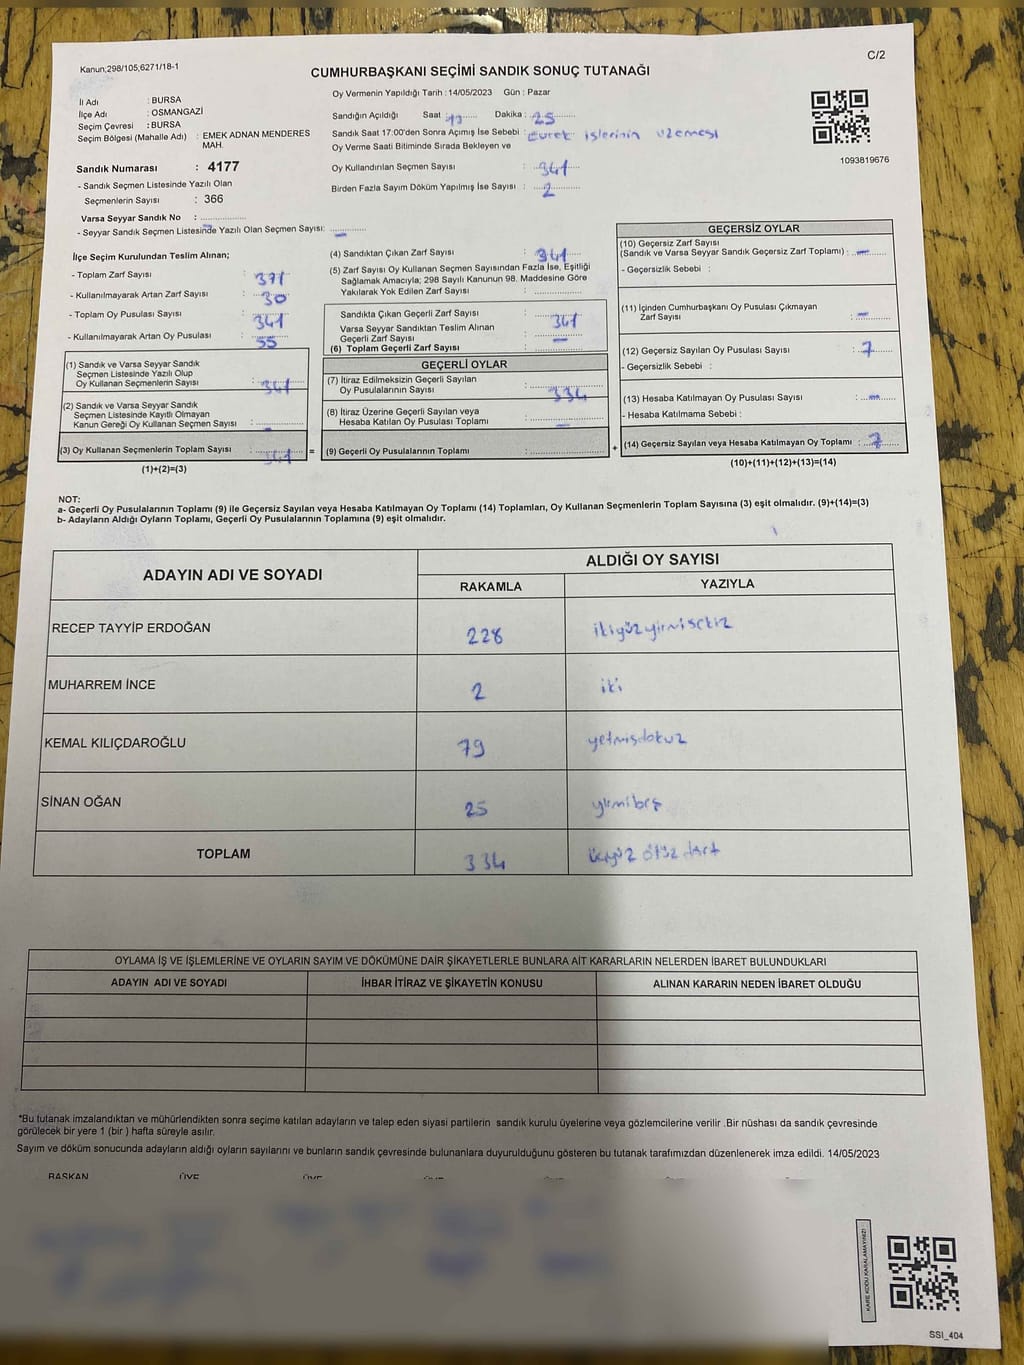 Kanun;298/105,6271/18-1
C/2
CUMHURBAŞKANI SEÇİMİ SANDIK SONUÇ TUTANAĞI
İl Adı : BURSA
İlçe Adı : OSMANGAZİ
Seçim Çevresi : BURSA
Seçim Bölgesi (Mahalle Adı) : EMEK ADNAN MENDERES MAH.
Sandık Numarası : 4177
- Sandık Seçmen Listesinde Yazılı Olan
Seçmenlerin Sayısı : 366
Varsa Seyyar Sandık No : ...............
- Seyyar Sandık Seçmen Listesinde Yazılı Olan Seçmen Sayısı: —
Oy Vermenin Yapıldığı Tarih : 14/05/2023 Gün : Pazar
Sandığın Açıldığı Saat Dakika : 25
Sandık Saat 17:00'den Sonra Açımış İse Sebebi : Evrak işlerinin uzaması
Oy Verme Saati Bitiminde Sırada Bekleyen ve
Oy Kullandırılan Seçmen Sayısı : 341
Birden Fazla Sayım Döküm Yapılmış İse Sayısı : 2
1093819676
İlçe Seçim Kurulundan Teslim Alınan;
- Toplam Zarf Sayısı : 371
- Kullanılmayarak Artan Zarf Sayısı : 30
- Toplam Oy Pusulası Sayısı : 341
- Kullanılmayarak Artan Oy Pusulası : 55
(1) Sandık ve Varsa Seyyar Sandık
Seçmen Listesinde Yazılı Olup
Oy Kullanan Seçmenlerin Sayısı : 341
(2) Sandık ve Varsa Seyyar Sandık
Seçmen Listesinde Kayıtlı Olmayan
Kanun Gereği Oy Kullanan Seçmen Sayısı : -
(3) Oy Kullanan Seçmenlerin Toplam Sayısı : 341 =
(1)+(2)=(3)
(4) Sandıktan Çıkan Zarf Sayısı : 341
(5) Zarf Sayısı Oy Kullanan Seçmen Sayısından Fazla İse, Eşitliği
Sağlamak Amacıyla; 298 Sayılı Kanunun 98. Maddesine Göre
Yakılarak Yok Edilen Zarf Sayısı : ...............
Sandıkta Çıkan Geçerli Zarf Sayısı : 341
Varsa Seyyar Sandıktan Teslim Alınan
Geçerli Zarf Sayısı : —
(6) Toplam Geçerli Zarf Sayısı : ...............
GEÇERLİ OYLAR
(7) İtiraz Edilmeksizin Geçerli Sayılan
Oy Pusulalarının Sayısı : 334
(8) İtiraz Üzerine Geçerli Sayılan veya
Hesaba Katılan Oy Pusulası Toplamı : —
(9) Geçerli Oy Pusulalarının Toplamı : ............... +
GEÇERSİZ OYLAR
(10) Geçersiz Zarf Sayısı
(Sandık ve Varsa Seyyar Sandık Geçersiz Zarf Toplamı) : —
- Geçersizlik Sebebi :
(11) İçinden Cumhurbaşkanı Oy Pusulası Çıkmayan
Zarf Sayısı : —
(12) Geçersiz Sayılan Oy Pusulası Sayısı : 7
- Geçersizlik Sebebi :
(13) Hesaba Katılmayan Oy Pusulası Sayısı : —
- Hesaba Katılmama Sebebi :
(14) Geçersiz Sayılan veya Hesaba Katılmayan Oy Toplamı : 7
(10)+(11)+(12)+(13)=(14)
NOT:
a- Geçerli Oy Pusulalarının Toplamı (9) ile Geçersiz Sayılan veya Hesaba Katılmayan Oy Toplamı (14) Toplamları, Oy Kullanan Seçmenlerin Toplam Sayısına (3) eşit olmalıdır. (9)+(14)=(3)
b- Adayların Aldığı Oyların Toplamı, Geçerli Oy Pusulalarının Toplamına (9) eşit olmalıdır.
ADAYIN ADI VE SOYADI ALDIĞI OY SAYISI
RAKAMLA YAZIYLA
RECEP TAYYİP ERDOĞAN 228 ikiyüzyirmisekiz
MUHARREM İNCE 2 iki
KEMAL KILIÇDAROĞLU 79 yetmişdokuz
SİNAN OĞAN 25 yirmibeş
TOPLAM 334 üçyüz otuz dört
OYLAMA İŞ VE İŞLEMLERİNE VE OYLARIN SAYIM VE DÖKÜMÜNE DAİR ŞİKAYETLERLE BUNLARA AİT KARARLARIN NELERDEN İBARET BULUNDUKLARI
ADAYIN ADI VE SOYADI İHBAR İTİRAZ VE ŞİKAYETİN KONUSU ALINAN KARARIN NEDEN İBARET OLDUĞU
*Bu tutanak imzalandıktan ve mühürlendikten sonra seçime katılan adayların ve talep eden siyasi partilerin sandık kurulu üyelerine veya gözlemcilerine verilir .Bir nüshası da sandık çevresinde
görülecek bir yere 1 (bir ) hafta süreyle asılır.
Sayım ve döküm sonucunda adayların aldığı oyların sayılarını ve bunların sandık çevresinde bulunanlara duyurulduğunu gösteren bu tutanak tarafımızdan düzenlenerek imza edildi. 14/05/2023
BAŞKAN ÜYE ÜYE
KARE KODU KARALAMAYINIZ!
SSI_404